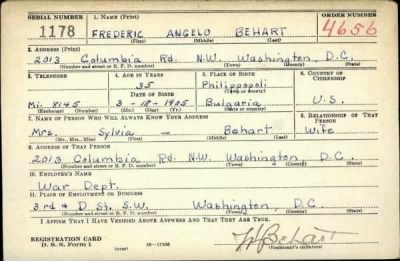 SERIAL NUMBER 1. NAME (Print) ORDER NUMBER
1178 FREDERIC ANGELO BEHART 4656
(First) (Middle) (Last)
2. ADDRESS (Print)
2013 Columbia Rd. N.W. Washington, D.C.
(Number and street or R. F. D. number) (Town) (County) (State)
3. TELEPHONE 4. AGE IN YEARS 5. PLACE OF BIRTH 6. COUNTRY OF CITIZENSHIP
35 Philippopoli
DATE OF BIRTH (Town or county)
Mi. 8145 3-18-1905 Bulgaria U.S.
(Exchange) (Number) (Mo.) (Day) (Yr.) (State or country)
7. NAME OF PERSON WHO WILL ALWAYS KNOW YOUR ADDRESS 8. RELATIONSHIP OF THAT PERSON
Mrs. Sylvia — Behart Wife
(Mr., Mrs., Miss) (First) (Middle) (Last)
9. ADDRESS OF THAT PERSON
2013 Columbia Rd. N.W. Washington, D.C.
(Number and street or R. F. D. number) (Town) (County) (State)
10. EMPLOYER'S NAME
War Dept.
11. PLACE OF EMPLOYMENT OR BUSINESS
3rd & D St. S.W. Washington, D.C.
(Number and street or R. F. D. number) (Town) (County) (State)
I AFFIRM THAT I HAVE VERIFIED ABOVE ANSWERS AND THAT THEY ARE TRUE.
REGISTRATION CARD
D. S. S. Form 1 (over) Behart
(Registrant's signature)